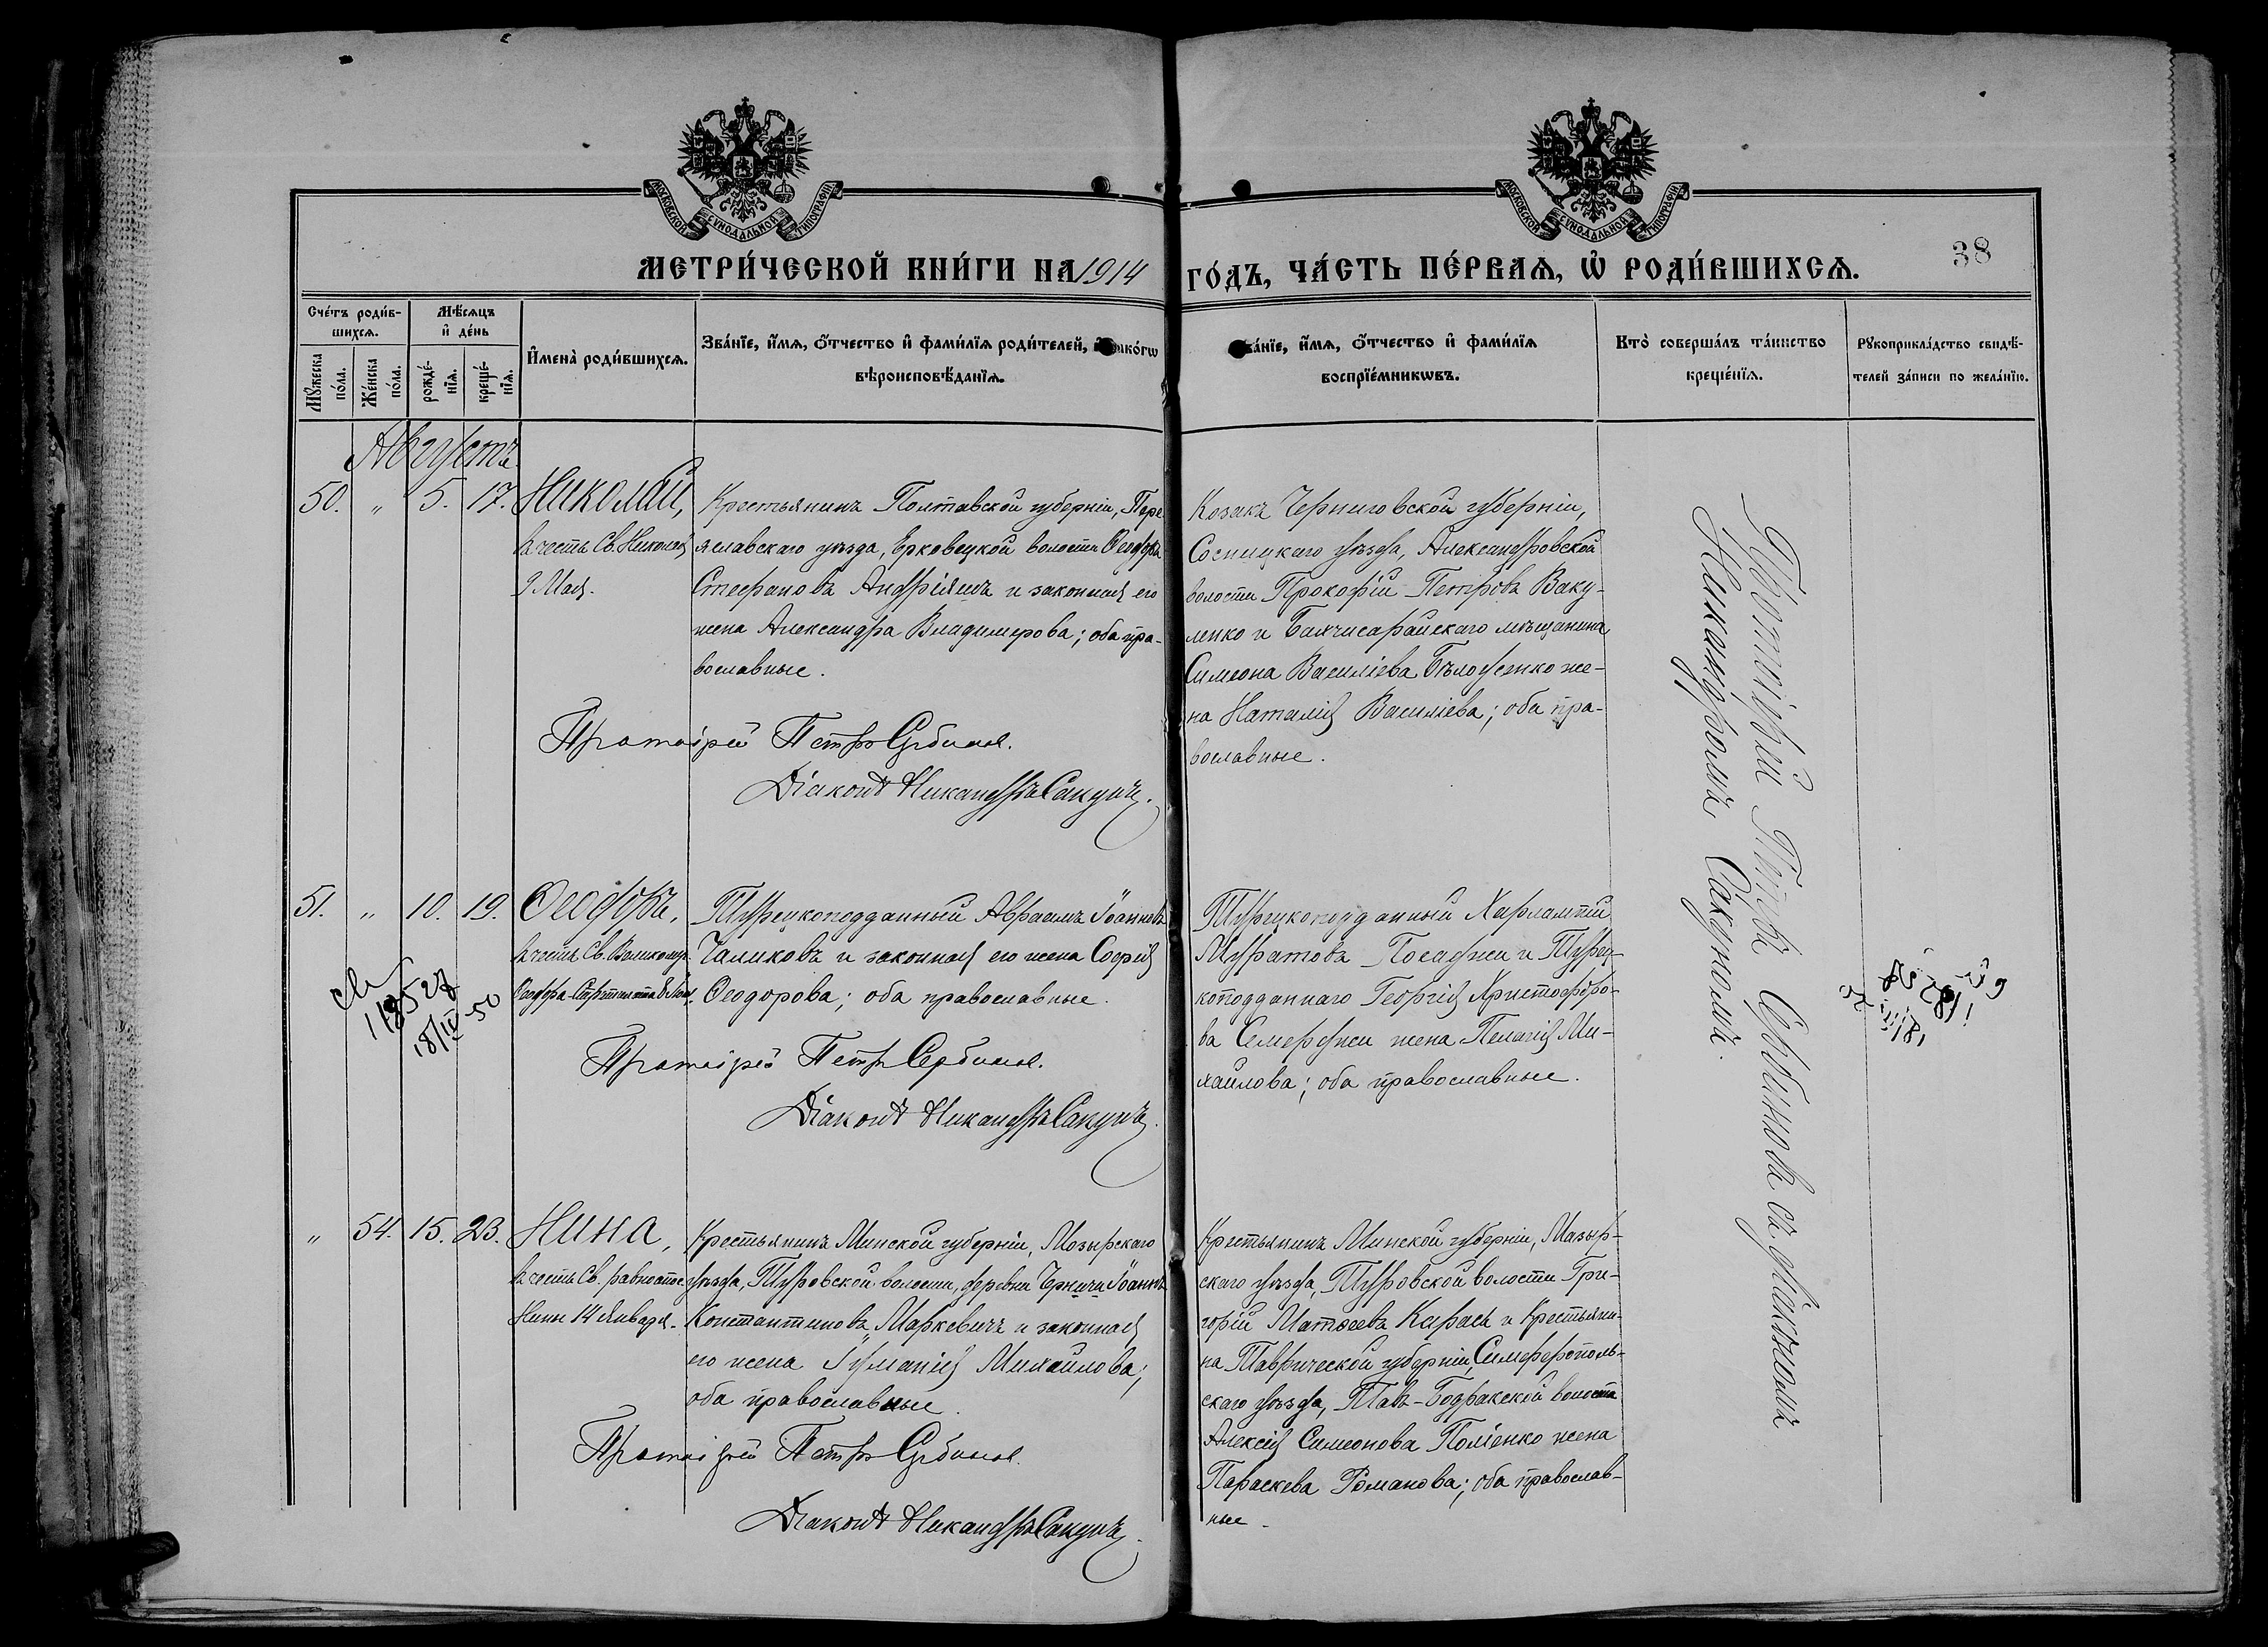 МОСКОВСКОЙ СУНОДАЛЬНОЙ ТИПОГРАФІИ
МОСКОВСКОЙ СУНОДАЛЬНОЙ ТИПОГРАФІИ
МЕТРИ́ЧЕСКОЙ КНИ́ГИ НА 1914 ГО́ДЪ, ЧА́СТЬ ПЕ́РВАѦ, Ѡ҆ РОДИ́ВШИХСѦ.
38
Сче́тъ роди́в-
шихсѧ.
Мѣ́сѧцъ
и҆ де́нь
Мꙋ́жеска
по́ла.
Же́нска
по́ла.
рожде́-
нїѧ.
креще́-
нїѧ.
И҆мена̀ роди́вшихсѧ.
Зва́нїе, и҆́мѧ, ѻ҆́тчество и҆ фами́лїѧ роди́телей,
вѣроисповѣ́данїѧ.
и҆́мѧ, ѻ҆́тчество и҆ фами́лїѧ
воспрїе́мникѡвъ.
Кто̀ соверша́лъ та́инство
креще́нїѧ.
Рꙋкоприкла́дство свидѣ́-
телей за́писи по жела́нїю.
Августъ
50. " 5. 17. Николай,
въ честь Св. Николая
9 Мая.
Крестьянинъ Полтавской губерніи, Пере
яславскаго уѣзда, Ерковецкой волости Ѳеодоръ
Стефановъ Андріяшъ и законная его
жена Александра Владимирова; оба пра-
вославные.
Протоіерей Петръ Сербиновъ.
Діаконъ Никандръ Сакунъ.
Козакъ Черниговской губерніи,
Сосницкаго уѣзда, Александровской
волости Прокофій Петровъ Ваку-
ленко и Бахчисарайскаго мѣщанина
Симеона Василіева Бѣлоденко же-
на Наталія Василіева; оба пра-
вославные.
51. " 10. 19. Ѳеодоръ,
въ честь Св. Великомуч.
Ѳеодора Стратилата 8 Іюня.
Турецкоподданный Авраамъ Іоанновъ
Чаликовъ и законная его жена Софія
Ѳеодорова; оба православные.
Протоіерей Петръ Сербиновъ.
Діаконъ Никандръ Сакунъ.
Турецкоподданный Харлампій
Муратовъ Посаджи и Турец-
коподданнаго Георгія Христофоро-
ва Семерджи жена Пелагія Ми-
хаилова; оба православные.
18/IV-50
" 54. 15. 23. Нина,
въ честь Св. равноапос.
Нины 14 Января.
Крестьянинъ Минской губерніи, Мозырскаго
уѣзда, Туровской волости, деревни Черничи Іоаннъ
Константиновъ Маркевичъ и законная
его жена Іуліанія Михаилова;
оба православные.
Протоіерей Петръ Сербиновъ.
Діаконъ Никандръ Сакунъ.
Крестьянинъ Минской губерніи, Мазыр-
скаго уѣзда, Туровской волости Гри-
горій Матѳеевъ Карась и Крестьяни-
на Таврической губерніи, Симферополь-
скаго уѣзда, Тавъ-Бодракской волости
Алексія Симеонова Поліенко жена
Параскева Романова; оба православ-
ные.
Протоіерей Петръ Сербиновъ съ діакономъ
Никандромъ Сакуномъ.